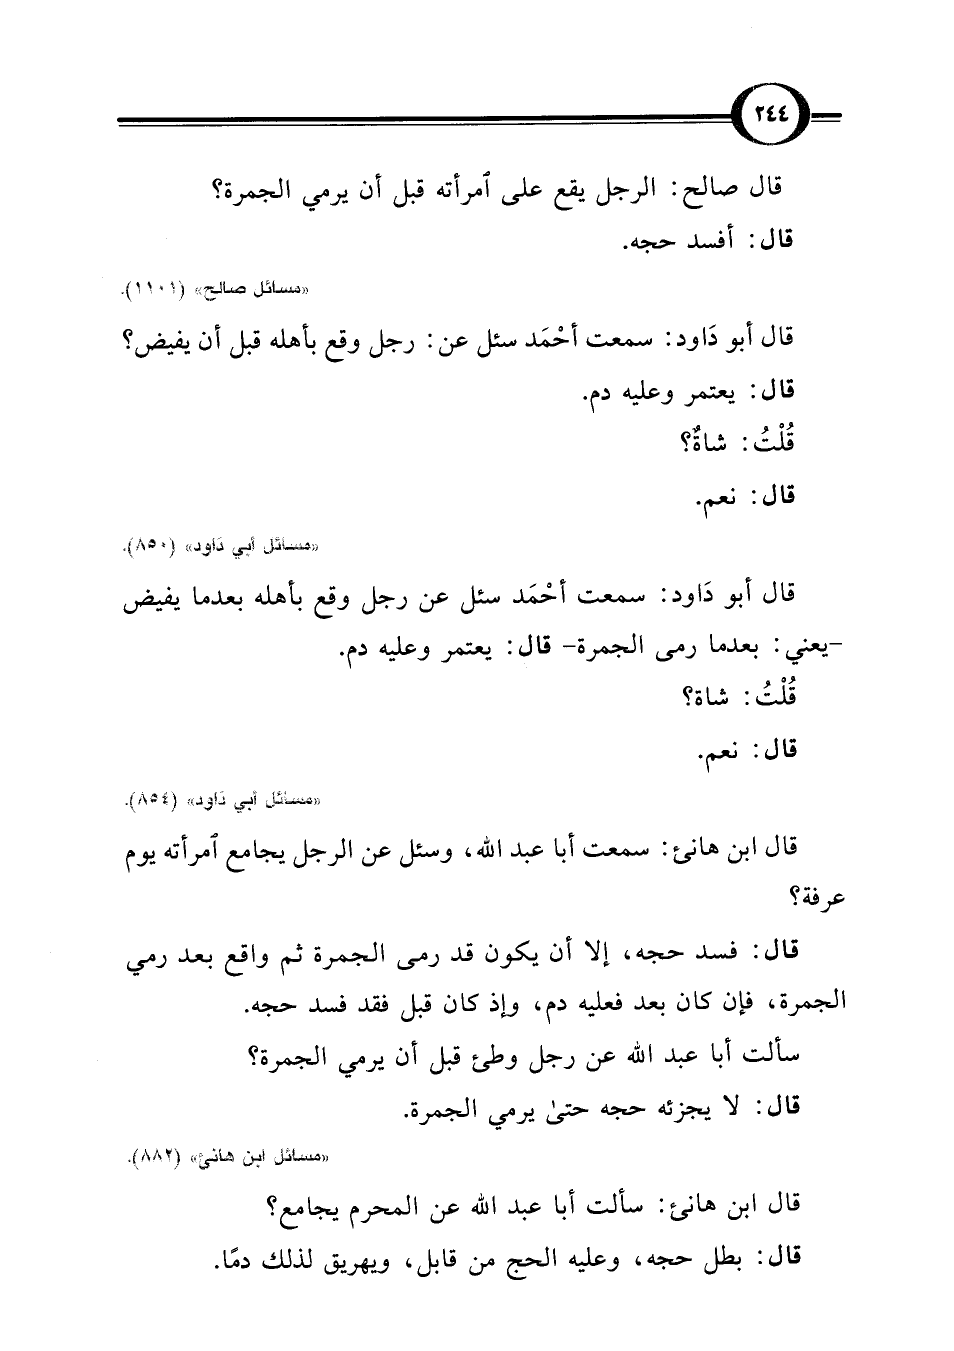 ٢٤٤
قال صالح: الرجل يقع على ٱمرأته قبل أن يرمي الجمرة؟
قال: أفسد حجه.
«مسائل صالح» (١١٠١).
قال أبو دَاود: سمعت أحْمَد سئل عن: رجل وقع بأهله قبل أن يفيض؟
قال: يعتمر وعليه دم.
قُلْتُ: شاةٌ؟
قال: نعم.
«مسائل أبي دَاود» (٨٥٠).
قال أبو دَاود: سمعت أحْمَد سئل عن رجل وقع بأهله بعدما يفيض
-يعني: بعدما رمى الجمرة- قال: يعتمر وعليه دم.
قُلْتُ: شاة؟
قال: نعم.
«مسائل أبي دَاود» (٨٥٤).
قال ابن هانئ: سمعت أبا عبد الله، وسئل عن الرجل يجامع ٱمرأته يوم
عرفة؟
قال: فسد حجه، إلا أن يكون قد رمى الجمرة ثم واقع بعد رمي
الجمرة، فإن كان بعد فعليه دم، وإذ كان قبل فقد فسد حجه.
سألت أبا عبد الله عن رجل وطئ قبل أن يرمي الجمرة؟
قال: لا يجزئه حجه حتىٰ يرمي الجمرة.
«مسائل ابن هانئ» (٨٨٢).
قال ابن هانئ: سألت أبا عبد الله عن المحرم يجامع؟
قال: بطل حجه، وعليه الحج من قابل، ويهريق لذلك دمًا.